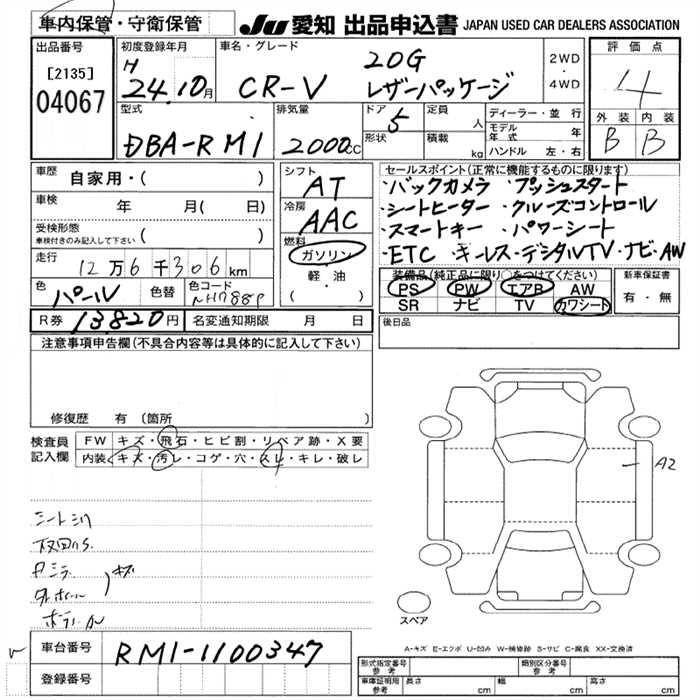 車内保管・守衛保管
JU 愛知 出品申込書 JAPAN USED CAR DEALERS ASSOCIATION
出品番号
[2135]
04067
初度登録年月
H
24.10月
車名・グレード
CR-V
20G
レザーパッケージ
2WD
・
4WD
評価点
4
外装 内装
B B
型式
DBA-RM1
排気量
2000cc
ドア
5
形状
定員
人
積載
kg
ディーラー・並行
モデル年式 年
ハンドル 左・右
車歴 自家用・( )
車検 年 月( 日)
受検形態
車検付きのみ記入して下さい ( )
走行 12万6千306km
色 パール
色替
色コード
NH788P
シフト
AT
冷房
AAC
燃料
ガソリン
・
軽・油
( )
セールスポイント(正常に機能するものに限ります)
・バックカメラ ・プッシュスタート
・シートヒーター ・クルーズコントロール
・スマートキー ・パワーシート
・ETC ・キーレス・デジタルTV・ナビ・AW
装備品(純正品に限り○をつけてください)
PS PW エアB AW
SR ナビ TV カワシート
新車保証書
有・無
R券 13820円
名変通知期限 月 日
後日品
注意事項申告欄(不具合内容等は具体的に記入して下さい)
修復歴 有(箇所 )
検査員
記入欄
FW キズ・飛石・ヒビ割・リペア跡・X要
内装 キズ・汚レ・コゲ・穴・スレ・キレ・破レ
シートシワ
キズ
A2
スペア
A-キズ E-エクボ U-凹み W-補修跡 S-サビ C-腐食 XX-交換済
車台番号 RM1-1100347
登録番号
形式指定番号
参考
類別区分番号
参考
車庫証明用
参考
長さ cm
幅 cm
高さ cm